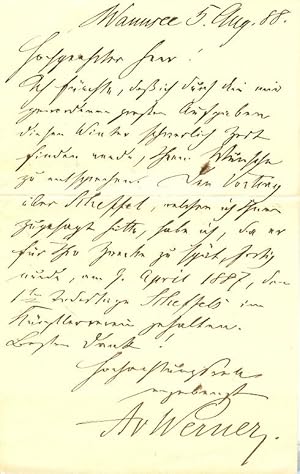 Wannsee 5. Aug. 88.
Hochgeehrter Herr!
Ich fürchte, daß ich durch die mir
gewordenen großen Aufgaben
diesen Winter schwerlich Zeit
finden werde, Ihrem Wunsche
zu entsprechen. Den Vortrag
über Scheffel, welchen ich Ihnen
zugesagt hatte, habe ich, da er
für Ihre Zwecke zu spät fertig
wurde, am 9. April 1887, dem
1ten Todestage Scheffels im
Künstlerverein gehalten.
Besten Dank!
Hochachtungsvoll
ergebenst
AvWerner.